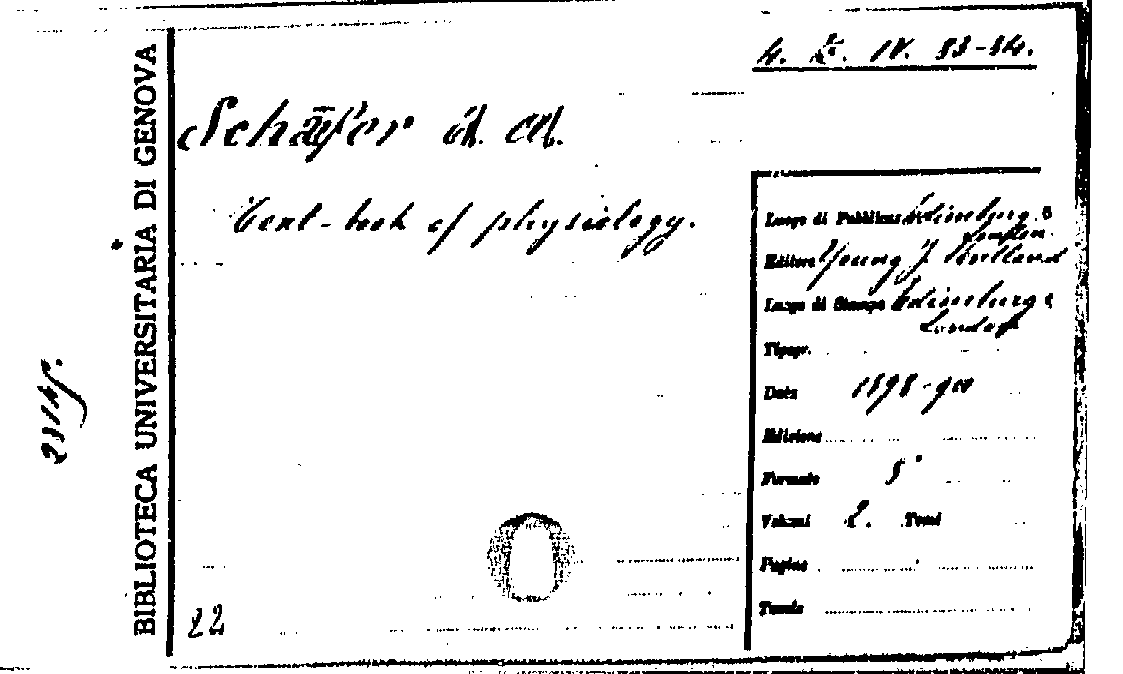 BIBLIOTECA UNIVERSITARIA DI GENOVA
Schäfer
Text-book of physiology.
22
Luogo di Pubblicaz. Edimburg &
London
Editore Young J. Pentland
Luogo di Stampa Edimburg &
London
Tipogr.
Data 1898-900
Edizione
Formato 8°
Volumi 2. Tomi
Pagine
Tavole